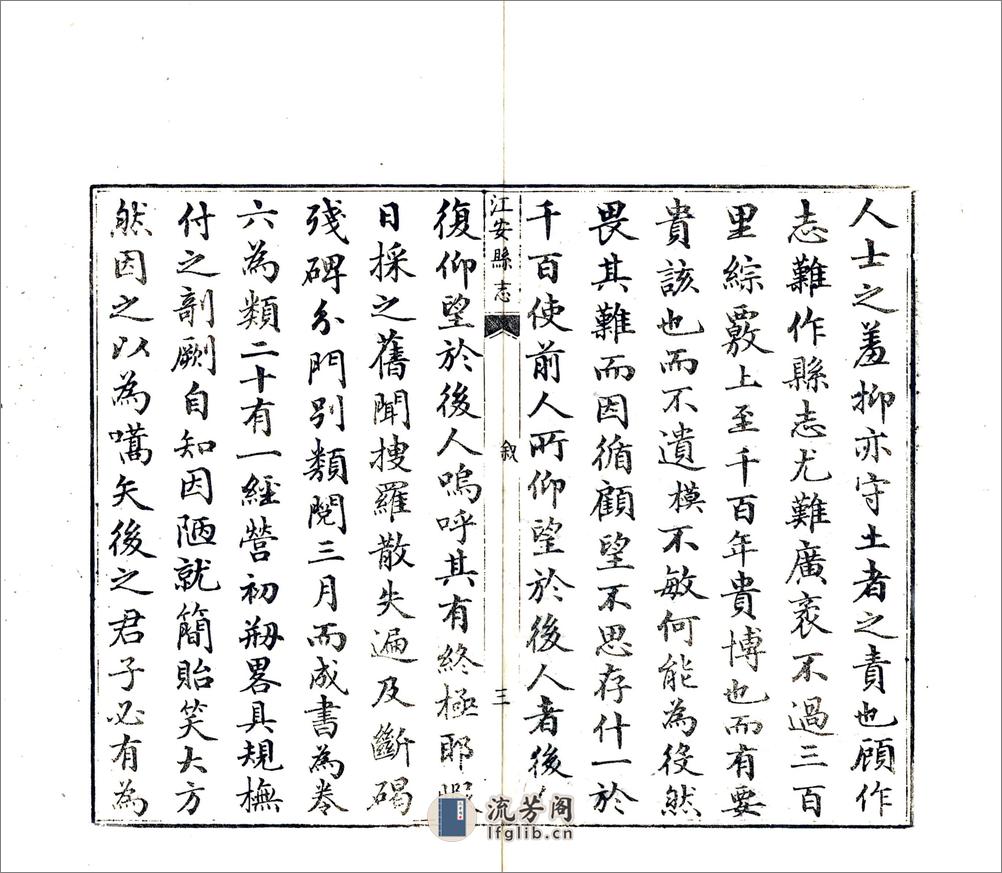 人士之羞抑亦守土者之責也顧作
志難作縣志尤難廣袤不過三百
里綜覈上至千百年貴博也而有要
貴該也而不遺模不敏何能為役然
畏其難而因循顧望不思存什一於
千百使前人所仰望於後人者後人
江安縣志
叙
三
復仰望於後人嗚呼其有終極耶暇
日採之舊聞搜羅散失遍及斷碣
殘碑分門別類閱三月而成書為卷
六為類二十有一經營初刱畧具規橅
付之剞劂自知因陋就簡貽笑大方
然因之以為嚆矢後之君子必有為
流芳阁
lfglib.cn